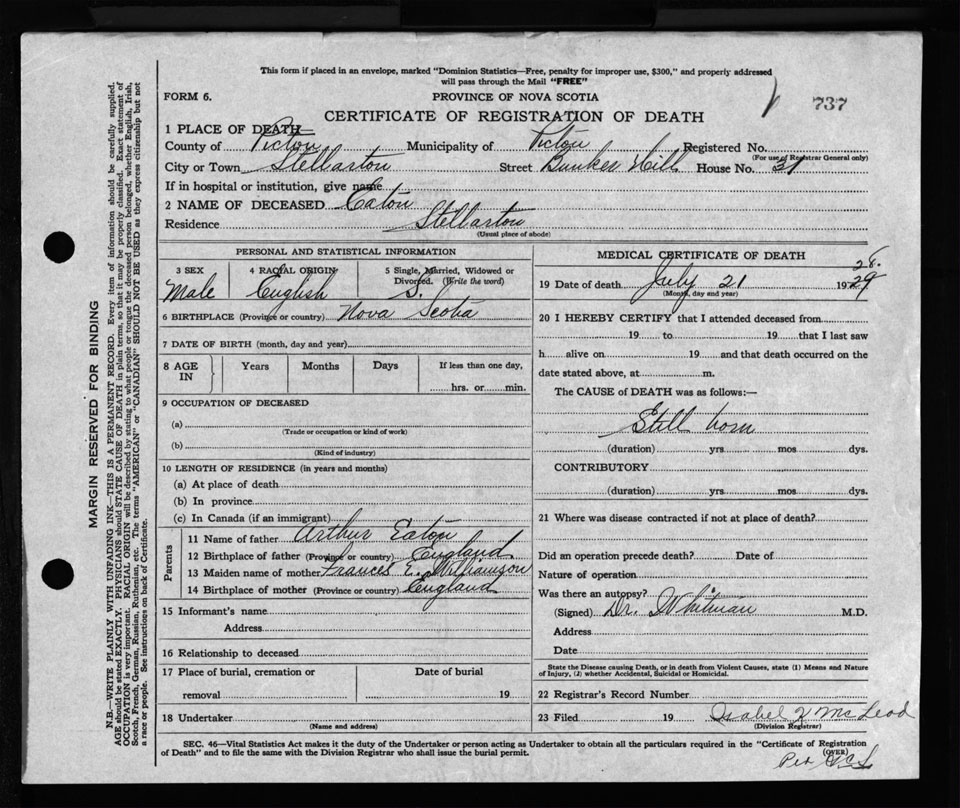 This form if placed in an envelope, marked "Dominion Statistics—Free, penalty for improper use, $300," and properly addressed
will pass through the Mail "FREE"
FORM 6.
PROVINCE OF NOVA SCOTIA
737
CERTIFICATE OF REGISTRATION OF DEATH
1 PLACE OF DEATH—
County of Pictou Municipality of Pictou Registered No.
(For use of Registrar General only)
City or Town Stellarton Street Bunker Hill House No. 31
If in hospital or institution, give name
2 NAME OF DECEASED Eaton
Residence Stellarton
(Usual place of abode)
PERSONAL AND STATISTICAL INFORMATION
3 SEX 4 RACIAL ORIGIN 5 Single, Married, Widowed or
Divorced. (Write the word)
Male English S.
6 BIRTHPLACE (Province or country) Nova Scotia
7 DATE OF BIRTH (month, day and year)
8 AGE IN Years Months Days If less than one day,
hrs. or min.
9 OCCUPATION OF DECEASED
(a)
(Trade or occupation or kind of work)
(b)
(Kind of industry)
10 LENGTH OF RESIDENCE (in years and months)
(a) At place of death
(b) In province
(c) In Canada (if an immigrant)
Parents
11 Name of father Arthur Eaton
12 Birthplace of father (Province or country) England
13 Maiden name of mother Frances E. Williamson
14 Birthplace of mother (Province or country) England
15 Informant's name
Address
16 Relationship to deceased
17 Place of burial, cremation or Date of burial
removal 19
18 Undertaker
(Name and address)
MEDICAL CERTIFICATE OF DEATH
28.
19 Date of death July 21 1929
(Month, day and year)
20 I HEREBY CERTIFY that I attended deceased from
19 to 19 that I last saw
h alive on 19 and that death occurred on the
date stated above, at m.
The CAUSE of DEATH was as follows:—
Still born
(duration) yrs mos dys.
CONTRIBUTORY
(duration) yrs mos dys.
21 Where was disease contracted if not at place of death?
Did an operation precede death? Date of
Nature of operation
Was there an autopsy?
(Signed) Dr. Whitman M.D.
Address
Date
State the Disease causing Death, or in death from Violent Causes, state (1) Means and Nature
of Injury, (2) whether Accidental, Suicidal or Homicidal.
22 Registrar's Record Number
23 Filed 19 Isabel McLeod
(Division Registrar)
SEC. 46—Vital Statistics Act makes it the duty of the Undertaker or person acting as Undertaker to obtain all the particulars required in the "Certificate of Registration
of Death" and to file the same with the Division Registrar who shall issue the burial permit.
(OVER)
Per
MARGIN RESERVED FOR BINDING
N.B.—WRITE PLAINLY WITH UNFADING INK—THIS IS A PERMANENT RECORD. Every item of information should be carefully supplied.
AGE should be stated EXACTLY. PHYSICIANS should STATE CAUSE OF DEATH in plain terms, so that it may be properly classified. Exact statement of
OCCUPATION is very important. RACIAL ORIGIN will be described by stating to what people or tongue the deceased person belonged, whether English, Irish,
Scotch, French, German, Russian, Ruthenian, etc. The terms "AMERICAN" or "CANADIAN" SHOULD NOT BE USED as they express citizenship but not
a race or people. See instructions on back of Certificate.